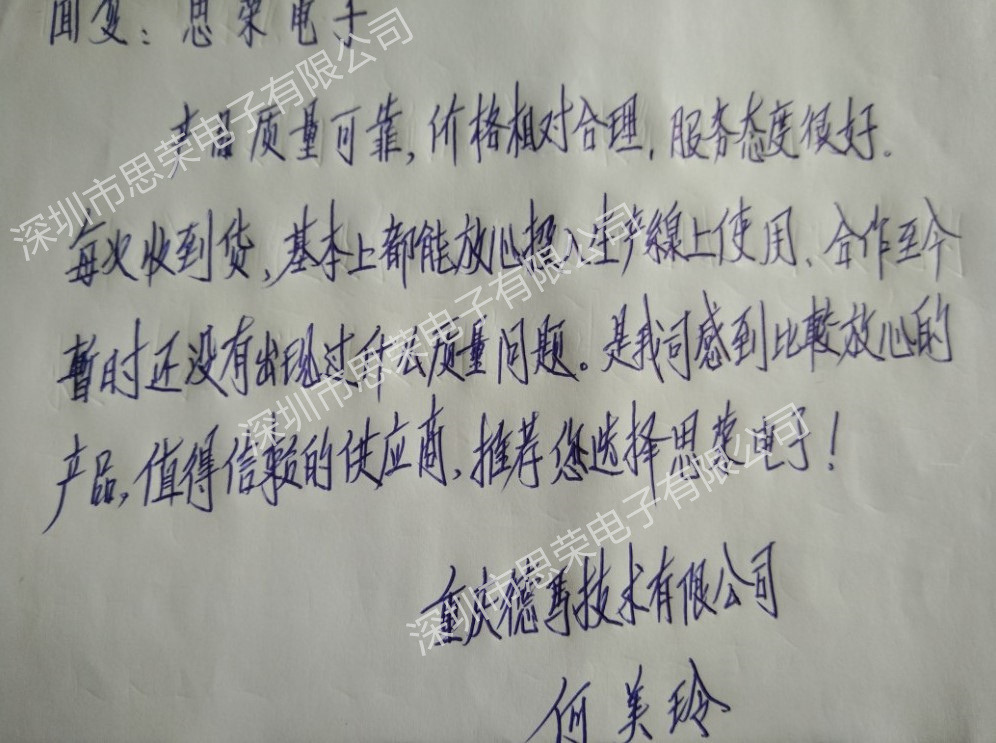 回复：思荣电子
产品质量可靠，价格相对合理，服务态度很好．
每次收到货，基本上都能放心投入生产線上使用、合作至今
暫时还没有出现过什么质量问题。是我司感到比較放心的
产品，值得信赖的供应商，推荐您选择思荣电子！
重庆德馬技术有限公司
何美玲
深圳市思荣电子有限公司
深圳市思荣电子有限公司
深圳市思荣电子有限公司